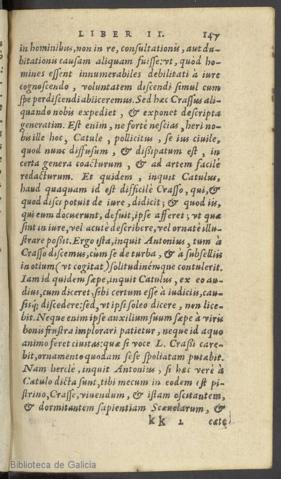 LIBER II. 147
in hominibus, non in re, consultationis, aut du-
bitationis causam aliquam fuisse: vt, quod ho-
mines essent innumerabiles debilitati à iure
cognoscendo, voluntatem discendi simul cum
spe perdiscendi abiiceremus. Sed hæc Crassus ali-
quando nobis expediet, & exponet descripta
generatim. Est enim, ne fortè nescias, heri no-
bis ille hoc, Catule, pollicitus, se ius ciuile,
quod nunc diffusum, & dissipatum est, in
certa genera coacturum, & ad artem facilè
redacturum. Et quidem, inquit Catulus,
haud quaquam id est difficilè Crasso, qui, &
quod disci potuit de iure, didicit; & quod iis,
qui eum docuerunt, defuit, ipse afferet, vt quæ
sint in iure, vel acutè describere, vel ornatè illu-
strare possit. Ergo ista, inquit Antonius, tum à
Crasso discemus, cum se de turba, & à subselliis
in otium (vt cogitat) solitudinémque contulerit.
Iam id quidem sæpe, inquit Catulus, ex eo au-
diui, cum diceret, sibi certum esse à iudiciis, cau-
sisq́; discedere; sed, vt ipsi soleo dicere, non lice-
bit. Neque enim ipse auxilium suum sæpe à viris
bonis frustra implorari patietur, neque id æquo
animo feret ciuitas: quæ si voce L. Crassi care-
bit, ornamento quodam sese spoliatam putabit.
Nam herclè, inquit Antonius, si hæc verè à
Catulo dicta sunt, tibi mecum in eodem est pi-
strino, Crasse, viuendum, & istam oscitantem,
& dormitantem sapientiam Scæuolarum, &
kk 2
Biblioteca de Galicia